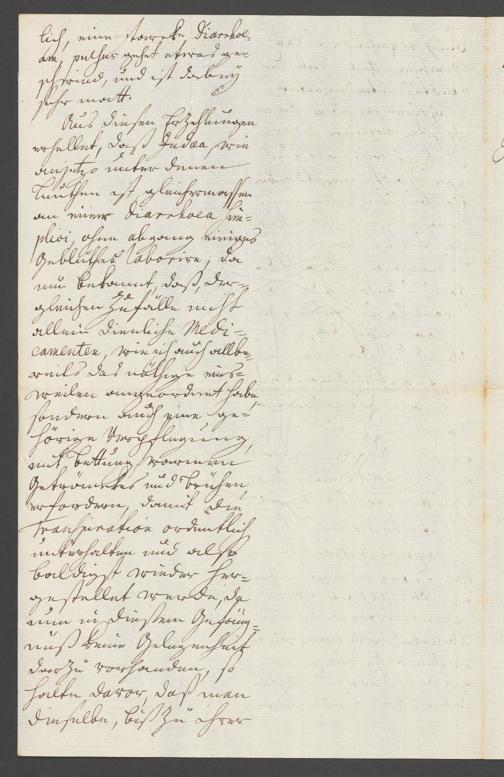 lich, eine starcke Diarrhoe-
am, pulsus gehet etwas ge-
schwind, und ist dabeÿ
sehr matt.
Aus diesen Erzehlungen
erhellet, daß Judæa, wie
anjetzo unter denen
Leuthen ist gleichermassen
an einer Diarrhoea sim-
plici, ohne abgang einiges
Geblüthes laborire, da
nun bekannt, daß, der-
gleichen Zufälle nicht
allein dienliche Medi-
camenten, wie ich auch allbe-
reits das nöthige einst-
weilen angeordnet habe,
sondern auch eine ge-
hörige Verpflegung,
mit bettung, warmen
Geträncke und brühen
erfordern, damit die
Transpiration ordentlich
unterhalten und also
baldigst wieder her-
gestellet werde, da
nun in diesem Gefäng-
nüß keine Gelegenheit
darzu vorhanden, so
halte davor, daß man
dieselbe, biß zu ihrer